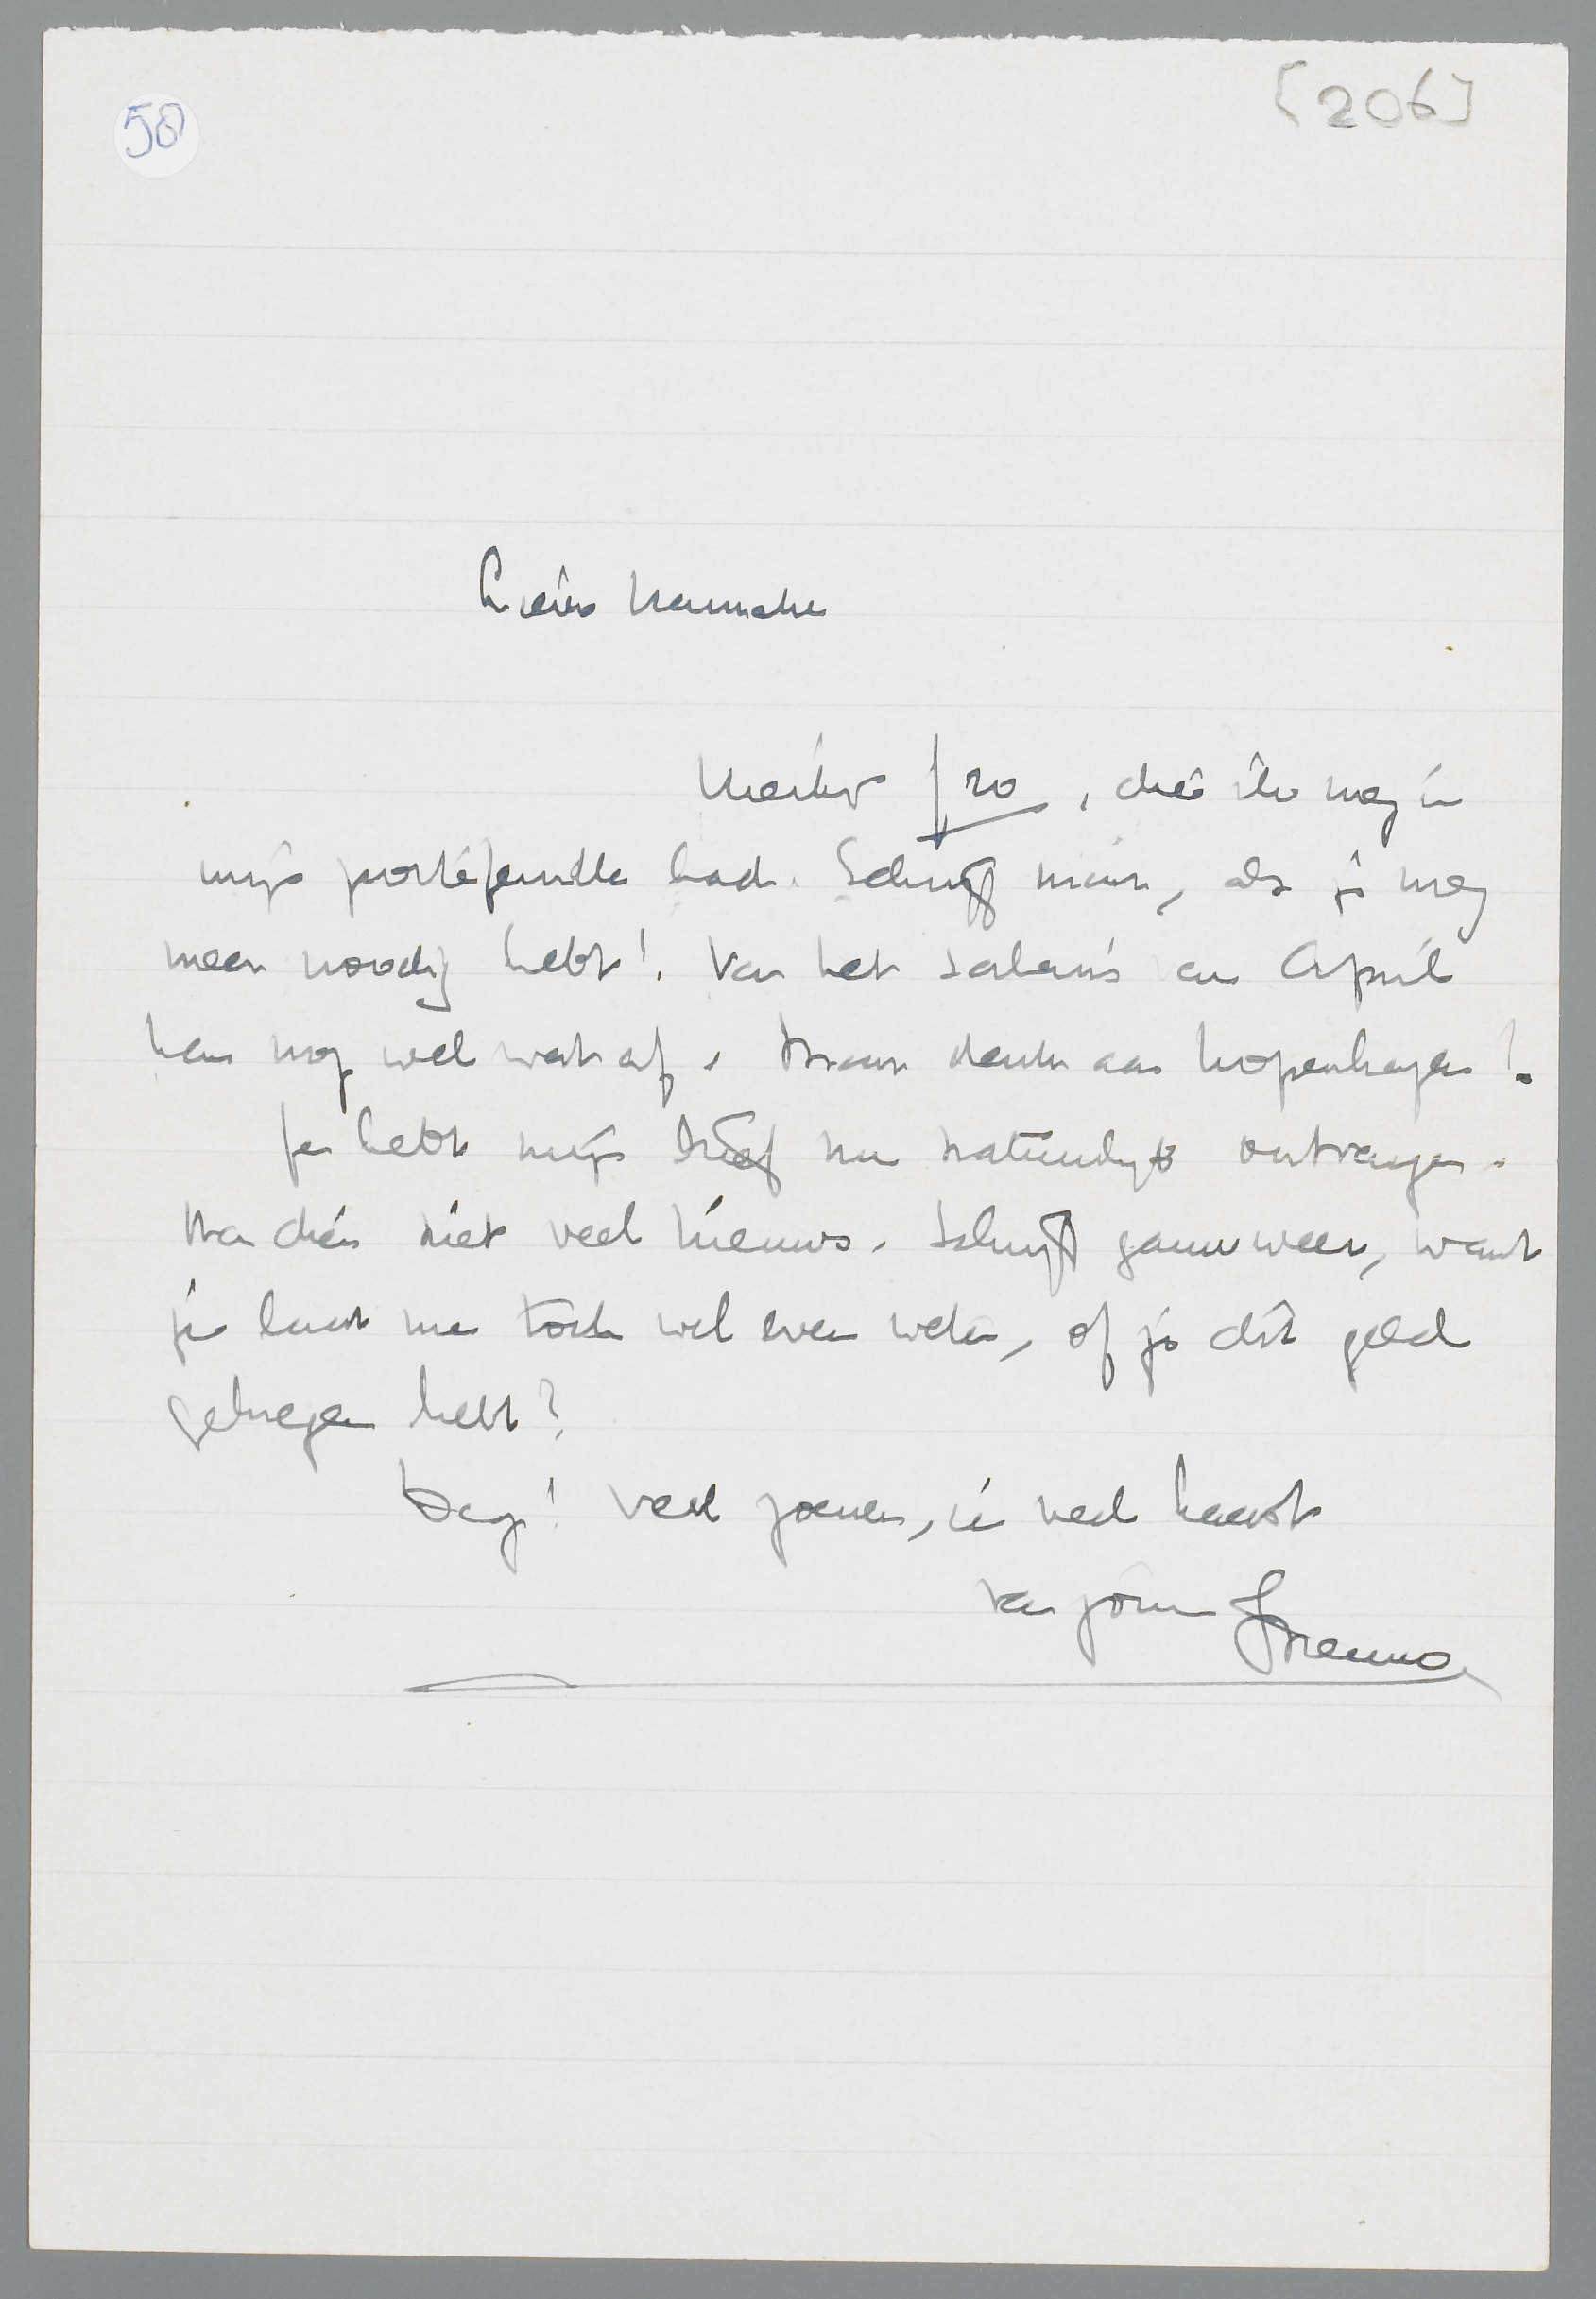 58
[206]
Lieve Hanneke
Hierbij f 20, die ik nog in
mijn portefeuille had. Schrijf maar, als je nog
meer noodig hebt! Van het salaris van April
kan nog wel wat af. Maar denk aan Kopenhagen!
Je hebt mijn brief nu natuurlijk ontvangen.
Nadien niet veel nieuws. Schrijf gauw weer, want
je laat me toch wel even weten, of je dit geld
gekregen hebt?
Dag! Veel zoenen, in veel haast
van jouw Menno